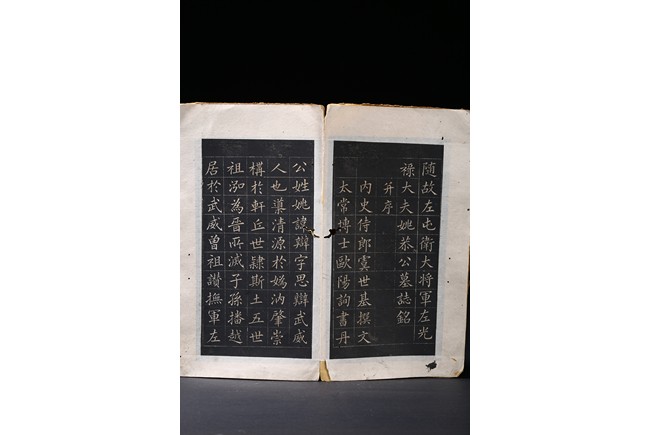 随故左屯衛大将軍左光
禄大夫姚恭公墓誌銘
并序
内史侍郎虞世基撰文
太常博士歐陽詢書丹
公姓姚諱辯字思辯武威
人也導清源於媯汭肇崇
構於軒丘世隸斯土五世
祖泓為晉所滅子孫播越
居於武威曽祖讃撫軍左